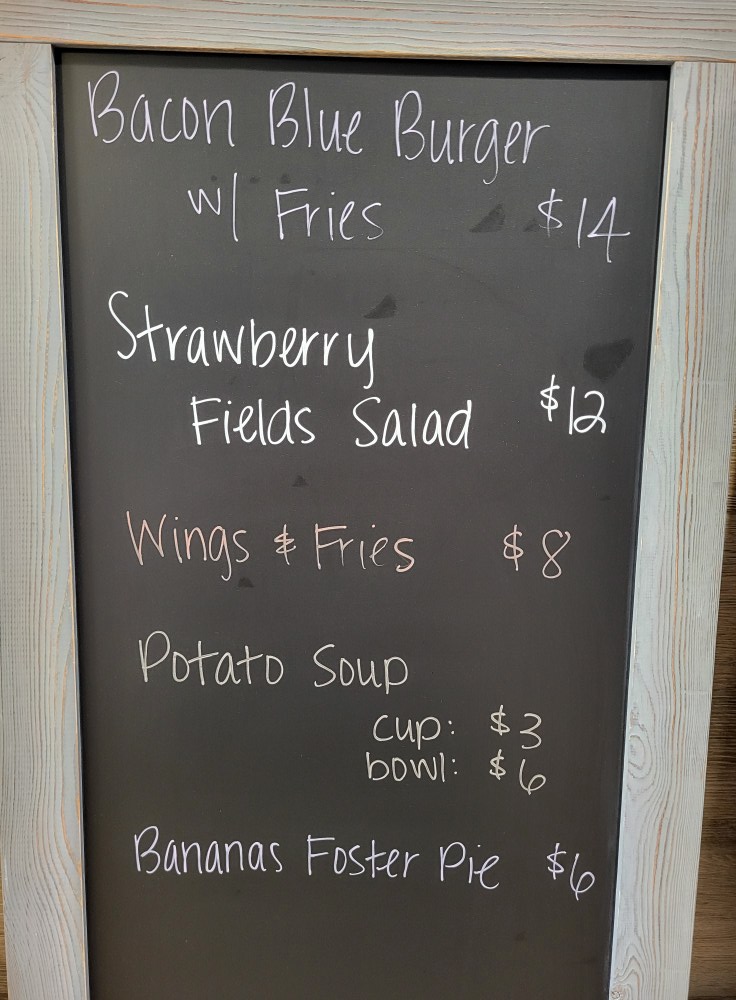 Bacon Blue Burger
w/ Fries $14
Strawberry
Fields Salad $12
Wings & Fries $8
Potato Soup
cup: $3
bowl: $6
Bananas Foster Pie $6